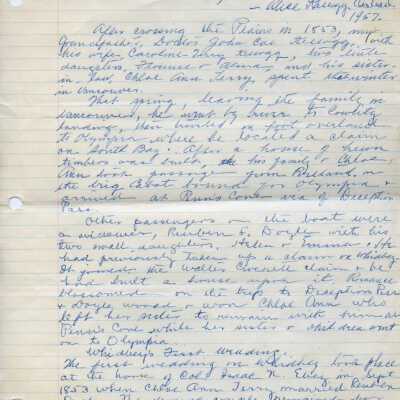 — Alice Kellogg Cahail
1957.
After crossing the Plains in 1853, my
Grandfather, Doctor John Coe Kellogg, with
his wife, Caroline Terry Kellogg, two little
daughters, Florence & Alma and his sister-
in-law, Chloe Ann Terry, spent the winter
in Vancouver.
That spring, leaving the family in
Vancouver, he went by river to Cowlitz
Landing, then hiked on foot overland
to Olympia where he located a claim
on South Bay. After a house of hewn
timbers was built, his family & Chloe
Ann took passage from Portland on
the brig Cabot bound for Olympia &
arrived at Penn's Cove via of Deception
Pass.
Other passengers on the boat were
a widower, Reuben S. Doyle with his
two small daughters, Helen & Emma. He
had previously taken up a claim on Whidbey.
It joined the Walter Crockett claim & he
had built a house upon it. Romance
blossomed on the trip to Deception Pass
& Doyle wooed & won Chloe Ann who
left her sister to remain with him at
Penn's Cove while her sister & went on
to Olympia.
Whidbey's First Wedding.
The first wedding on Whidbey took place
at the house of Col. Isaac N. Ebey on Sept
1853 when Chloe Ann Terry married Reuben